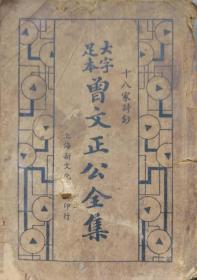 十八家詩鈔
大字
足本
曾文正公全集
上海新文化
印行